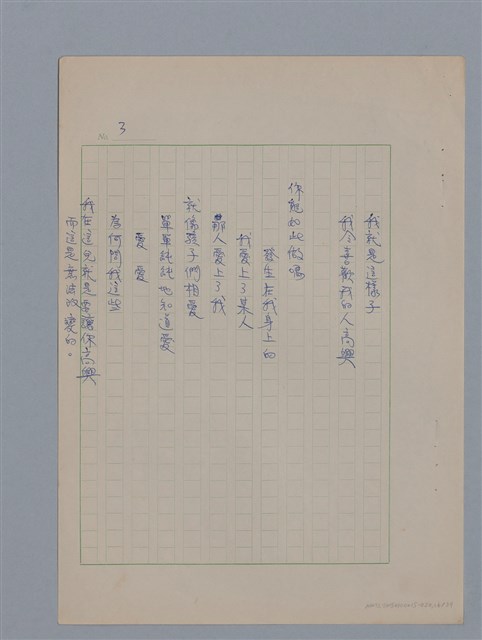 No. 3
我就是這樣子
我令喜歡我的人高興
你能如此做嗎
發生在我身上的
我愛上了某人
那人愛上了我
就像孩子們相愛
單單純純地知道愛
愛 愛
為何問我這些
我在這兒就是要讓你高興
而這是無法改變的。